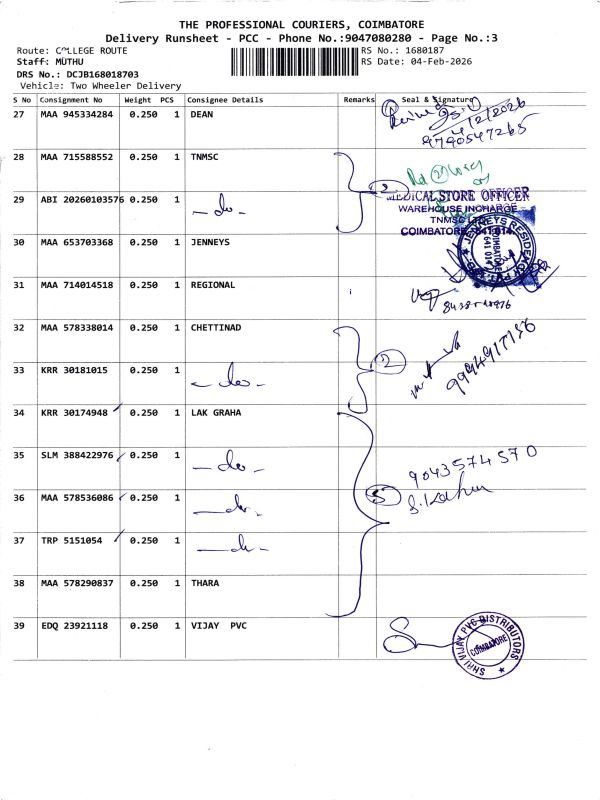 THE PROFESSIONAL COURIERS, COIMBATORE
Delivery Runsheet - PCC - Phone No.:9047080280 - Page No.:3
Route: COLLEGE ROUTE RS No.: 1680187
Staff: MUTHU RS Date: 04-Feb-2026
DRS No.: DCJB168018703
Vehicle: Two Wheeler Delivery
S No Consignment No Weight PCS Consignee Details Remarks Seal & Signature
27 MAA 945334284 0.250 1 DEAN
4/2/2026
9790547265
28 MAA 715588552 0.250 1 TNMSC
29 ABI 20260103576 0.250 1 - do -
MEDICAL STORE OFFICER
WAREHOUSE INCHARGE
TNMSC
COIMBATORE - 641 014
30 MAA 653703368 0.250 1 JENNEYS
JENNEYS RESIDENCY
COIMBATORE
641 014
31 MAA 714014518 0.250 1 REGIONAL
32 MAA 578338014 0.250 1 CHETTINAD
2
9994917156
33 KRR 30181015 0.250 1 - do -
34 KRR 30174948 0.250 1 LAK GRAHA
35 SLM 388422976 0.250 1 - do -
9043574570
36 MAA 578536086 0.250 1 - do -
5
37 TRP 5151054 0.250 1 - do -
38 MAA 578290837 0.250 1 THARA
39 EDQ 23921118 0.250 1 VIJAY PVC
SHRI VIJAY PVC DISTRIBUTORS
COIMBATORE